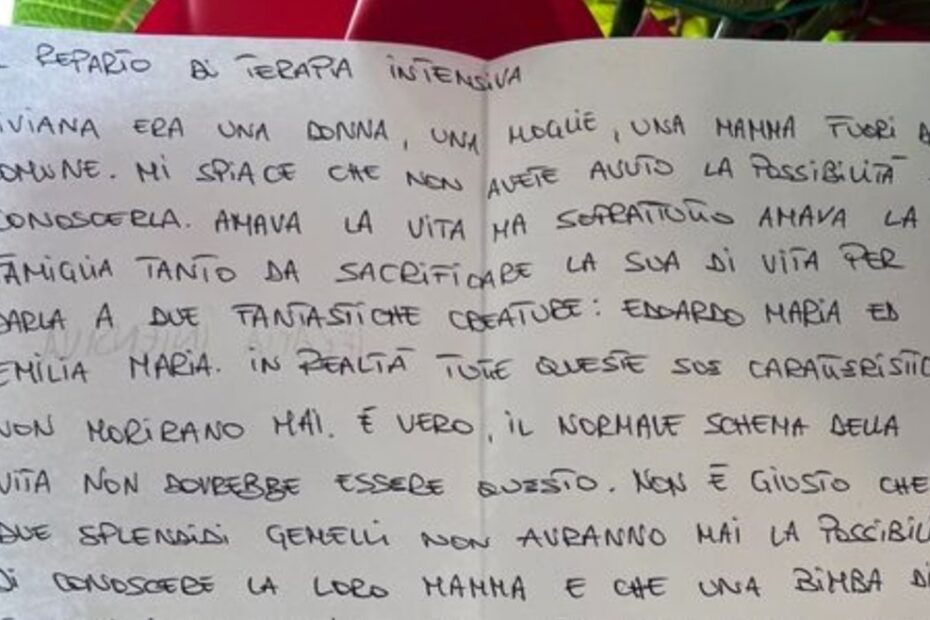 REPARTO DI TERAPIA INTENSIVA
VIVIANA ERA UNA DONNA, UNA MOGLIE, UNA MAMMA FUORI
COMUNE. MI SPIACE CHE NON AVETE AVUTO LA POSSIBILITÀ
CONOSCERLA. AMAVA LA VITA MA SOPRATTUTTO AMAVA LA
FAMIGLIA TANTO DA SACRIFICARE LA SUA DI VITA PER
DARLA A DUE FANTASTICHE CREATURE: EDOARDO MARIA ED
EMILIA MARIA. IN REALTÀ TUTTE QUESTE SUE CARATTERISTIC
NON MORIRANO MAI. È VERO, IL NORMALE SCHEMA DELLA
VITA NON DOVREBBE ESSERE QUESTO. NON È GIUSTO CHE
DUE SPLENDIDI GEMELLI NON AVRANNO MAI LA POSSIBILI
DI CONOSCERE LA LORO MAMMA E CHE UNA BIMBA DI